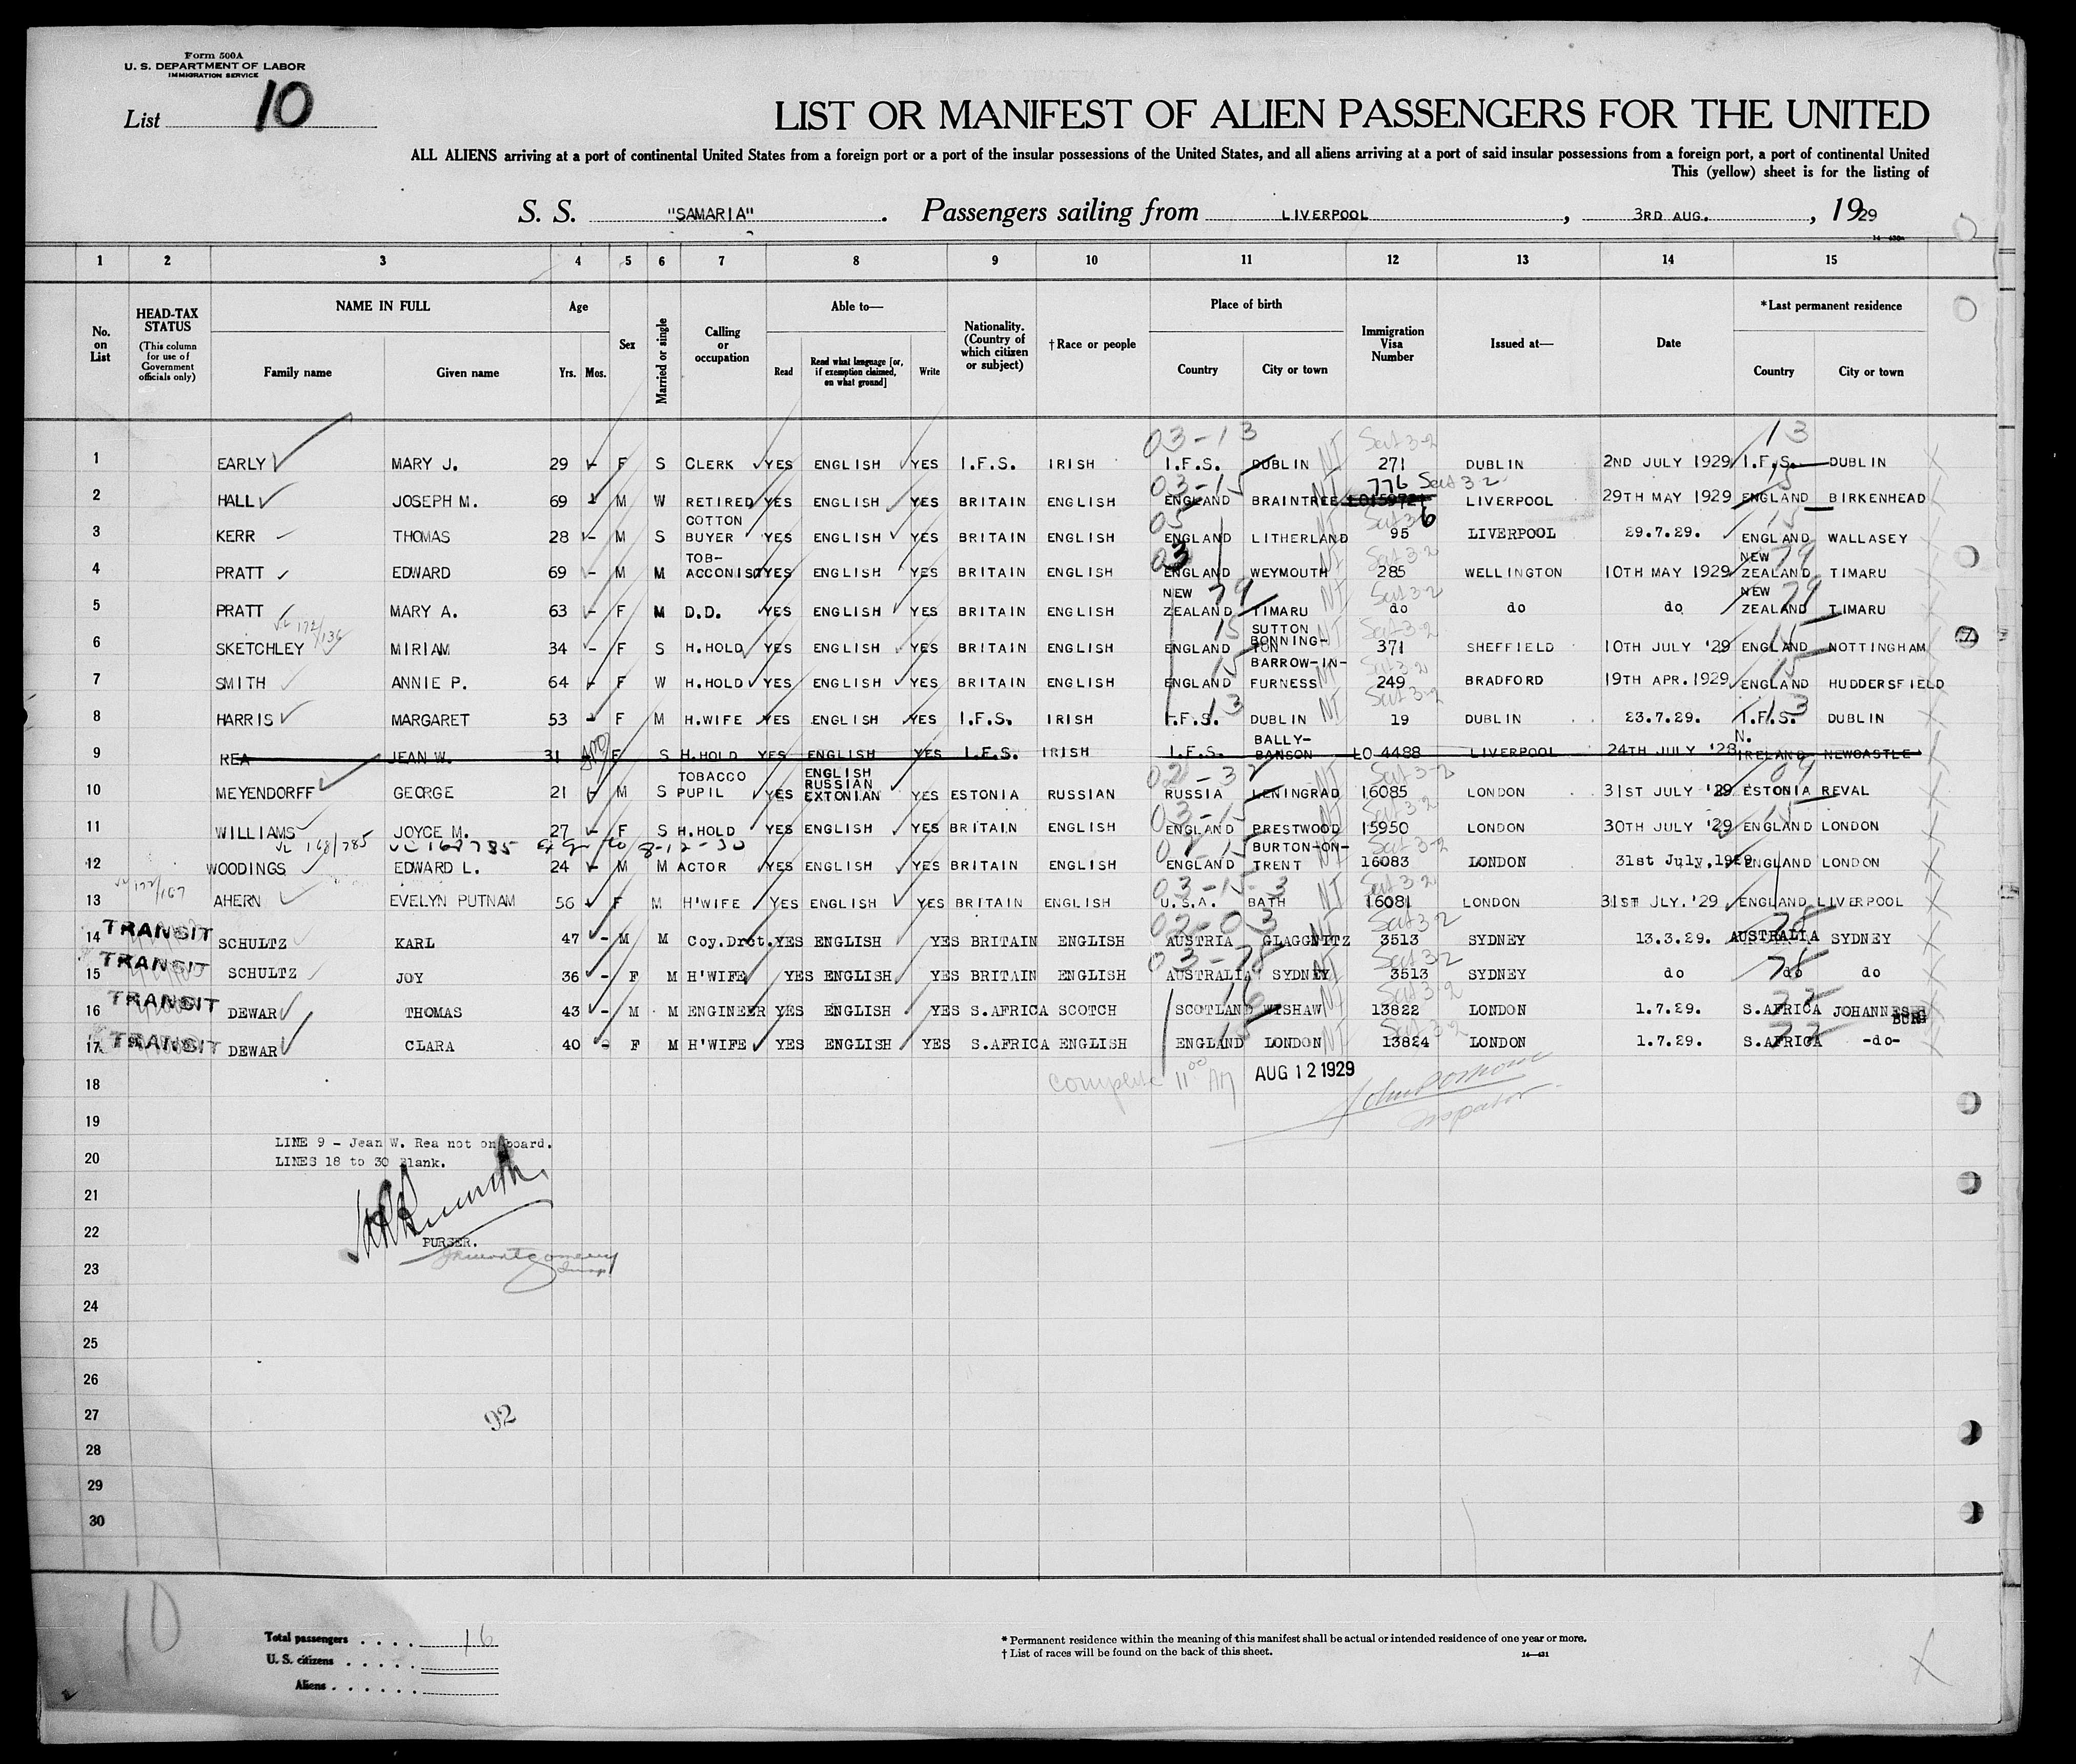 Form 500A
U. S. DEPARTMENT OF LABOR
IMMIGRATION SERVICE
List 10
LIST OR MANIFEST OF ALIEN PASSENGERS FOR THE UNITED
ALL ALIENS arriving at a port of continental United States from a foreign port or a port of the insular possessions of the United States, and all aliens arriving at a port of said insular possessions from a foreign port, a port of continental United
This (yellow) sheet is for the listing of
S. S. "SAMARIA". Passengers sailing from LIVERPOOL, 3RD AUG., 1929
1 2 3 4 5 6 7 8 9 10 11 12 13 14 15
No. on List
HEAD-TAX STATUS (This column for use of Government officials only)
NAME IN FULL
Family name Given name
Age
Yrs. Mos.
Sex
Married or single
Calling or occupation
Able to—
Read Read what language [or, if exemption claimed, on what ground] Write
Nationality. (Country of which citizen or subject)
†Race or people
Place of birth
Country City or town
Immigration Visa Number
Issued at—
Date
*Last permanent residence
Country City or town
03-13 13
1 EARLY MARY J. 29 - F S CLERK YES ENGLISH YES I.F.S. IRISH I.F.S. DUBLIN 271 DUBLIN 2ND JULY 1929 I.F.S. DUBLIN
03-15 776 Sect 3-2
2 HALL JOSEPH M. 69 - M W RETIRED YES ENGLISH YES BRITAIN ENGLISH ENGLAND BRAINTREE LIVERPOOL 29TH MAY 1929 ENGLAND BIRKENHEAD
3 KERR THOMAS 28 - M S COTTON BUYER YES ENGLISH YES BRITAIN ENGLISH ENGLAND LITHERLAND 95 LIVERPOOL 29.7.29. ENGLAND WALLASEY
4 PRATT EDWARD 69 - M M TOB-ACCONIST YES ENGLISH YES BRITAIN ENGLISH ENGLAND WEYMOUTH 285 WELLINGTON 10TH MAY 1929 NEW ZEALAND TIMARU
5 PRATT MARY A. 63 - F M D.D. YES ENGLISH YES BRITAIN ENGLISH NEW ZEALAND TIMARU do do do NEW ZEALAND TIMARU
6 SKETCHLEY MIRIAM 34 - F S H.HOLD YES ENGLISH YES BRITAIN ENGLISH ENGLAND SUTTON BONNING-TON 371 SHEFFIELD 10TH JULY '29 ENGLAND NOTTINGHAM
7 SMITH ANNIE P. 64 - F W H.HOLD YES ENGLISH YES BRITAIN ENGLISH ENGLAND BARROW-IN-FURNESS 249 BRADFORD 19TH APR.1929 ENGLAND HUDDERSFIELD
8 HARRIS MARGARET 53 - F M H.WIFE YES ENGLISH YES I.F.S. IRISH I.F.S. DUBLIN 19 DUBLIN 23.7.29. I.F.S. DUBLIN
9 REA JEAN W. 31 F S H.HOLD YES ENGLISH YES I.F.S. IRISH I.F.S. BALLY-BANSON LO 4488 LIVERPOOL 24TH JULY '28 N. IRELAND NEWCASTLE
10 MEYENDORFF GEORGE 21 - M S TOBACCO PUPIL YES ENGLISH RUSSIAN EXTONIAN YES ESTONIA RUSSIAN RUSSIA LENINGRAD 16085 LONDON 31ST JULY '29 ESTONIA REVAL
11 WILLIAMS JOYCE M. 27 - F S H.HOLD YES ENGLISH YES BRITAIN ENGLISH ENGLAND PRESTWOOD 15950 LONDON 30TH JULY '29 ENGLAND LONDON
12 WOODINGS EDWARD L. 24 - M M ACTOR YES ENGLISH YES BRITAIN ENGLISH ENGLAND BURTON-ON-TRENT 16083 LONDON 31st July,1929 ENGLAND LONDON
13 AHERN EVELYN PUTNAM 56 F M H'WIFE YES ENGLISH YES BRITAIN ENGLISH U.S.A. BATH 16081 LONDON 31ST JLY.'29 ENGLAND LIVERPOOL
14 TRANSIT SCHULTZ KARL 47 - M M Coy.Drct. YES ENGLISH YES BRITAIN ENGLISH AUSTRIA GLAGGNITZ 3513 SYDNEY 13.3.29. AUSTRALIA SYDNEY
15 TRANSIT SCHULTZ JOY 36 - F M H'WIFE YES ENGLISH YES BRITAIN ENGLISH AUSTRALIA SYDNEY 3513 SYDNEY do do do
16 TRANSIT DEWAR THOMAS 43 - M M ENGINEER YES ENGLISH YES S.AFRICA SCOTCH SCOTLAND WISHAW 13822 LONDON 1.7.29. S.AFRICA JOHANNESBURG
17 TRANSIT DEWAR CLARA 40 - F M H'WIFE YES ENGLISH YES S.AFRICA ENGLISH ENGLAND LONDON 13824 LONDON 1.7.29. S.AFRICA -do-
18 complete 11 00 AM AUG 12 1929
Inspector
19
LINE 9 - Jean W. Rea not on board.
20 LINES 18 to 30 Blank.
21
22
PURSER.
23
24
25
26
27
92
28
29
30
10
Total passengers 16
U. S. citizens
Aliens
* Permanent residence within the meaning of this manifest shall be actual or intended residence of one year or more.
† List of races will be found on the back of this sheet.